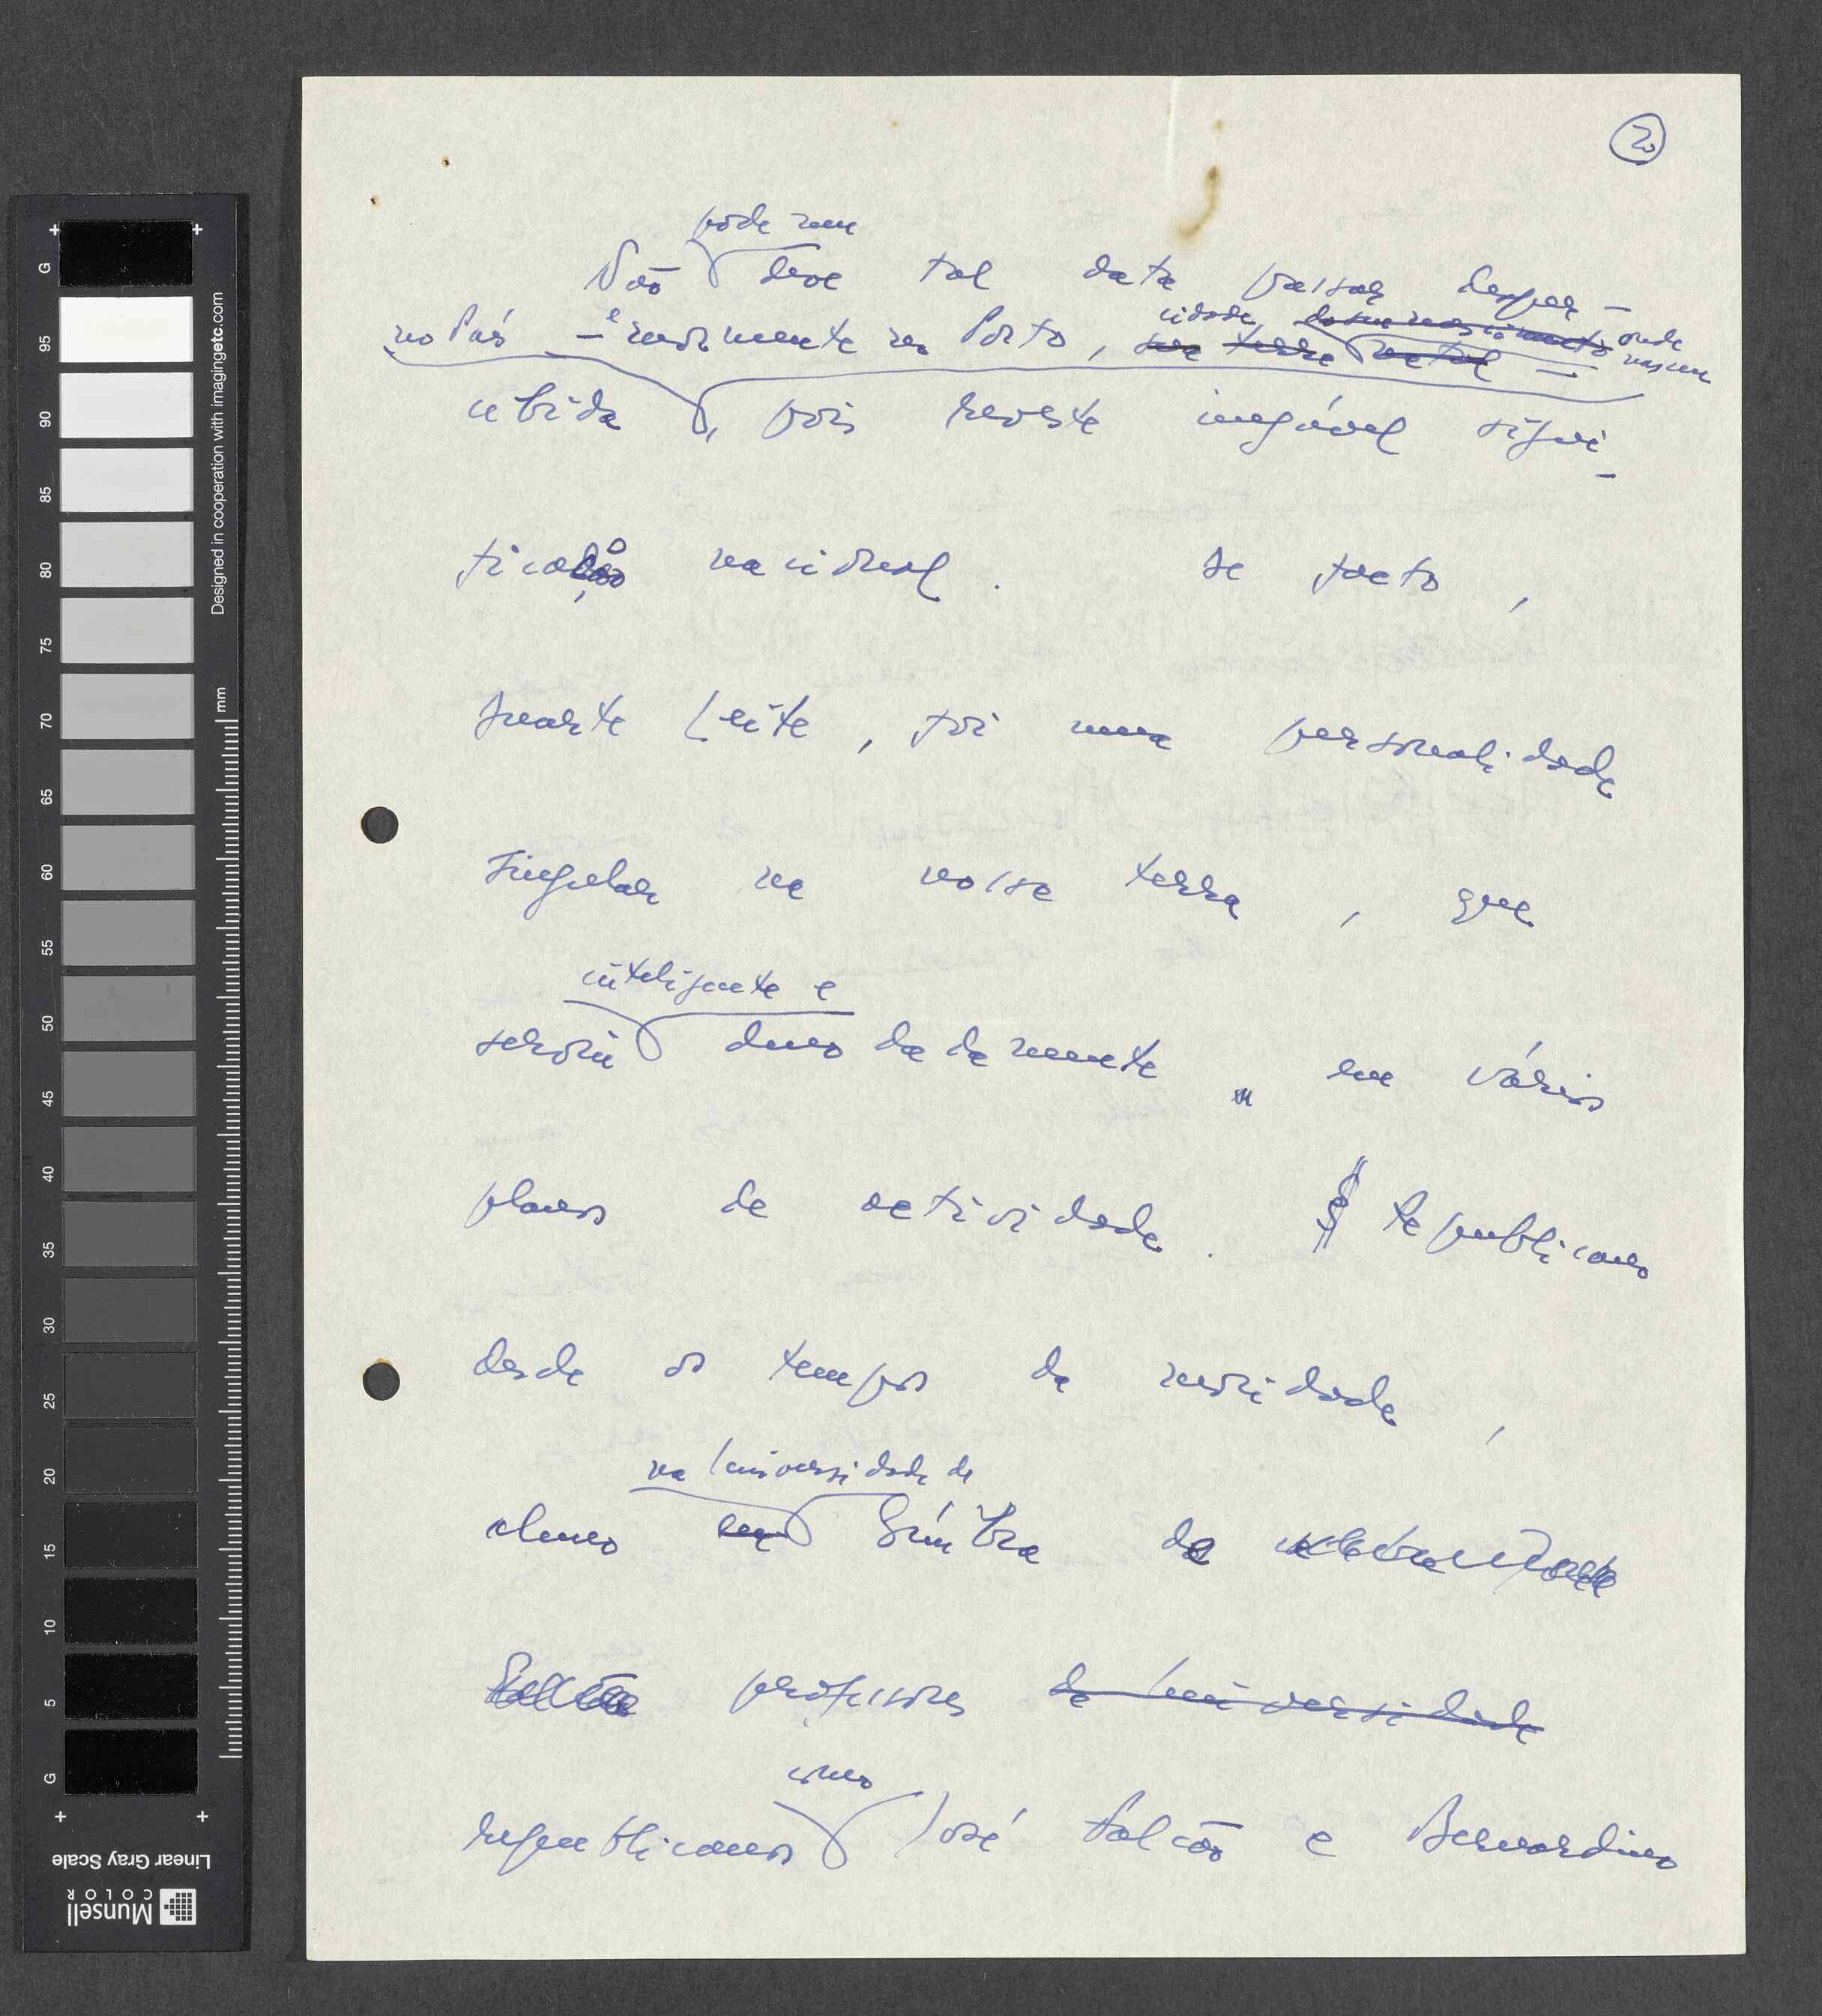 2
pode nem
Não deve tal data passar desper-
no País - e mormente no Porto, sua terra natal cidade do seu nascimento onde nasceu -
cebida, pois reveste inegável signi-
ficado nacional. De facto,
Duarte Leite, foi uma personalidade
singular na nossa terra, que
inteligente e
serviu devo da da mente, em vários
planos de actividade. Republicano
desde os tempos da mocidade,
na Universidade de
aluno em Coimbra de
professores da Universidade
como
republicanos José Falcão e Bernardino
G 95 90 85 80 75 70 65 60 55 50 45 40 35 30 25 20 15 10 5 G
mm
Designed in cooperation with imagingetc.com
Linear Gray Scale
Munsell
COLOR